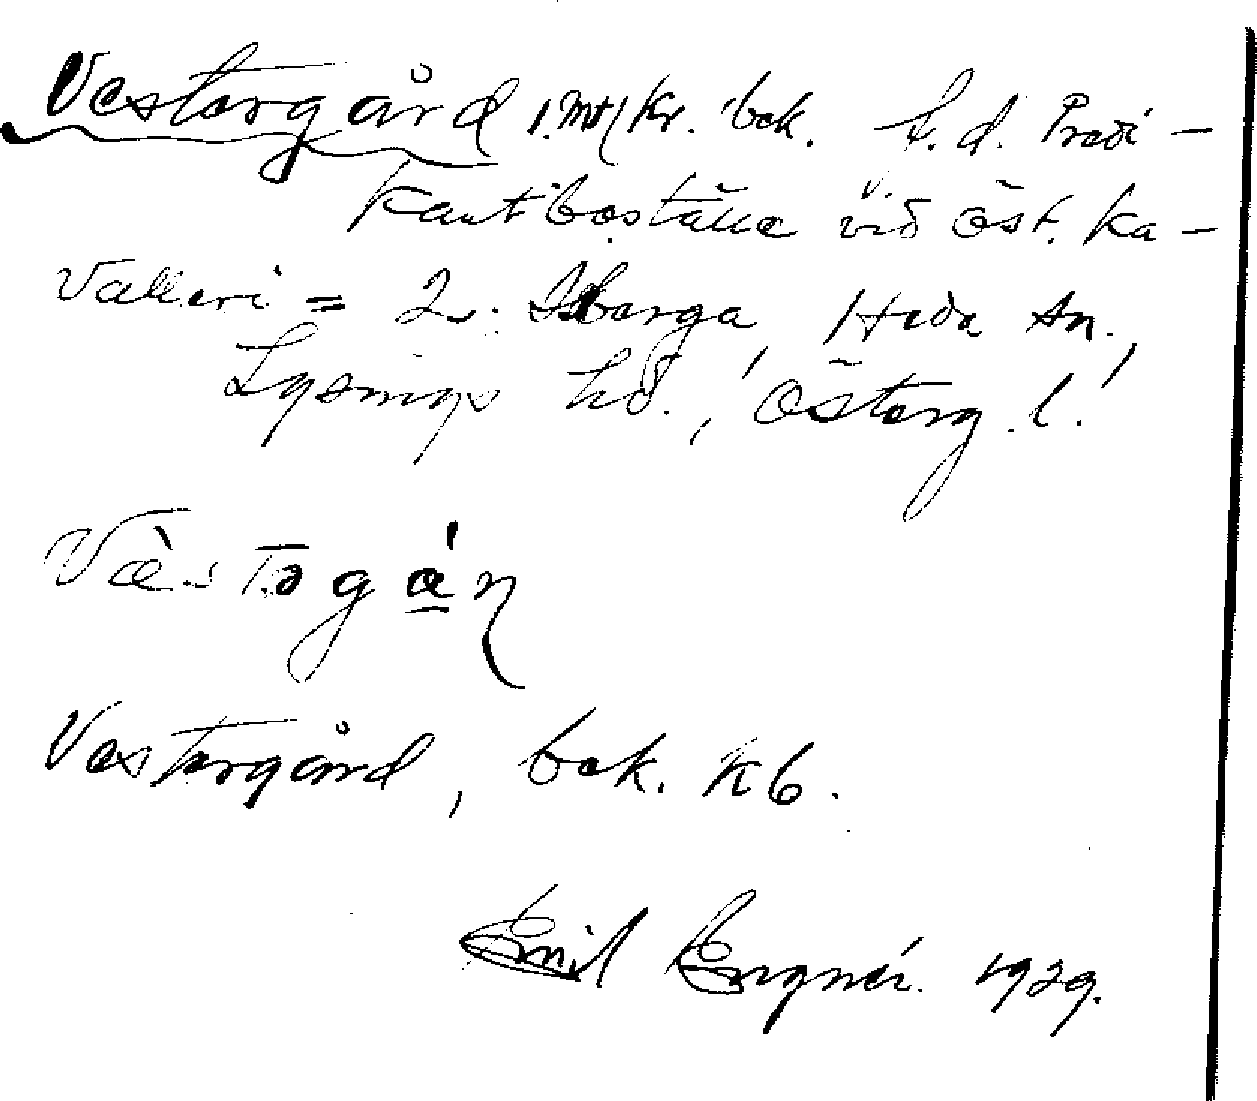 Vestergård 1. Mtl Kr. bok. f. d. Predi-
kantboställe vid Öst. ka-
valleri = 2. Isberga, Heda sn.,
Lysings hd., Österg. l.
Väs tə g á n
Vestergård, bok. Kb.
Emil Engnér. 1929.